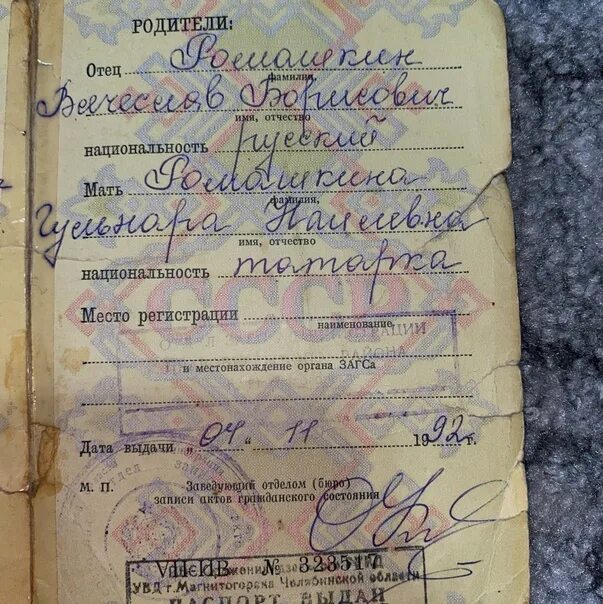 РОДИТЕЛИ:
Отец Ромашкин
фамилия,
Вячеслав Борисович
имя, отчество
национальность русский
Мать Ромашкина
фамилия,
Гульнара Наилевна
имя, отчество
национальность татарка
СССР
Место регистрации
наименование
и местонахождение органа ЗАГСа
Дата выдачи „ 04 “ 11 1992 г.
М. П. Заведующий отделом (бюро)
записи актов гражданского состояния
VII-ИВ № 323517
УВД г. Магнитогорска Челябинской области
ПАСПОРТ ВЫДАН